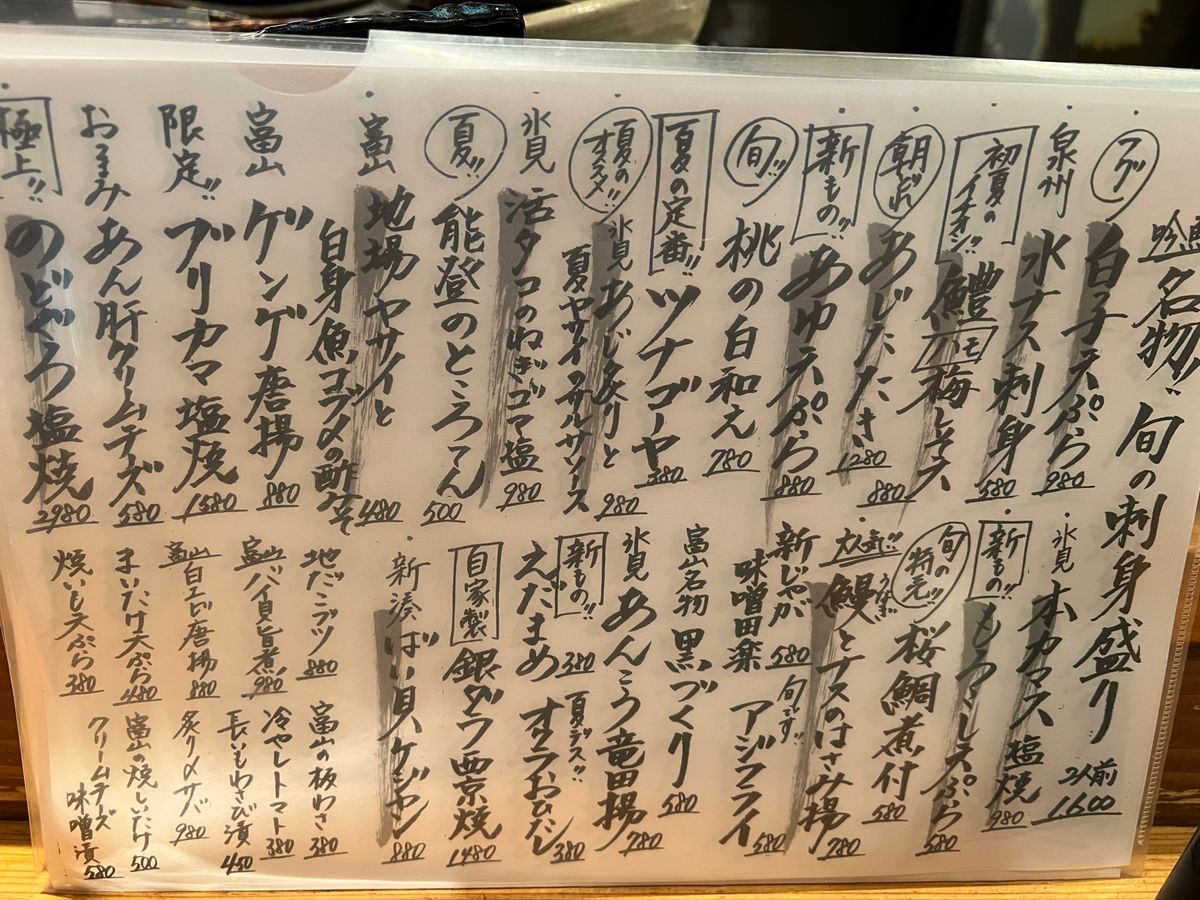 名物!! 旬の刺身盛り 2人前 1.600
フグ 白子天ぷら 980
泉州 水ナス刺身 580
初夏の 鱧 ハモ 梅レタス 880
朝どれ あじたたき 1280
新もの!! あゆ天ぷら 880
旬!! 桃の白和え 780
夏の定番!! ツナゴーヤ 380
夏のオススメ 氷見あじ炙りと
夏ヤサイのサルサソース 980
氷見 活タコのねぎゴマ塩 980
夏!! 能登のところてん 500
富山 地場ヤサイと
白身魚コブ〆の酢 480
富山 ゲンゲ唐揚 880
限定!! ブリカマ塩焼 1580
おつまみ あん肝クリームチーズ 580
極上!! のどぐろ塩焼 2980
氷見 本カマス塩焼 980
新もの!! もろこし天ぷら 580
旬の 桜鯛煮付 580
大人気!! 鰻とナスのはさみ揚 780
うなぎ
新じゃが 味噌田楽 580
旬です アジフライ 580
富山名物 黒づくり 580
氷見 あんこう竜田揚 780
新もの!! えだまめ 380
夏デス!! オクラおひたし 380
自家製 銀ダラ西京焼 1480
新湊 ばい貝ケジャン 880
地だこブツ 880
富山の板わさ 380
富山 バイ貝旨煮 980
冷やしトマト 380
富山 白エビ唐揚 880
長いもわさび漬 450
まいたけ天ぷら 480
炙り〆サバ 980
焼いも天ぷら 380
富山の焼しいたけ 500
クリームチーズ
味噌漬 580